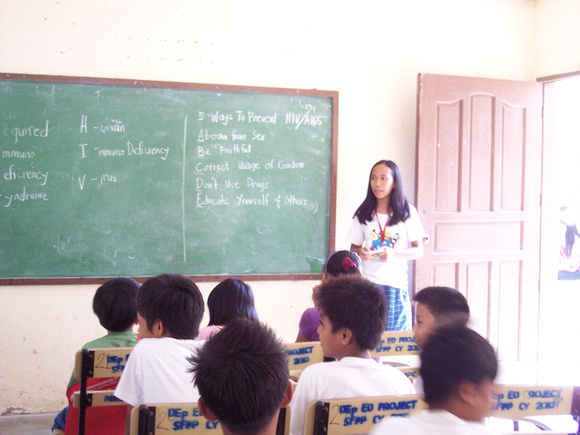 cquired
mmuno
eficiency
yndrome
H - uman
I - mmuno Deficiency
V - irus
5 - Ways To Prevent HIV/AIDS
Abstain from Sex
Be Faithful
Correct Usage of Condom
Don't Use Drugs
Educate Yourself & Others
DEp ED PROJECT
SFMP CY 2010
DEp ED PROJECT
SFMP CY 2010
DEp ED PROJECT
SFMP CY
DEp ED PROJECT
SFMP CY 2010